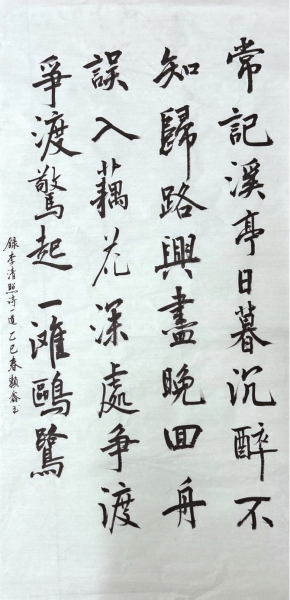 常記溪亭日暮沉醉不
知歸路興盡晚回舟
誤入藕花深處爭渡
爭渡驚起一灘鷗鷺
錄李清照詩一道乙巳春